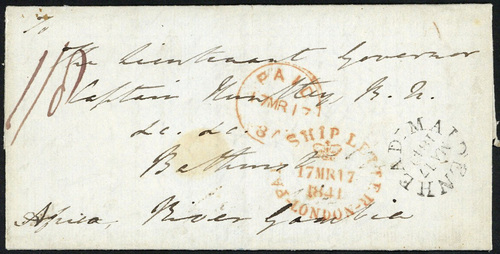 To
The Lieutenant Governor
1/8
Captain Huntley R.N.
&c. &c.
Bathurst
Africa, River Gambia
PAID
17MR17
SHIP LETTER
17MR17
1841
LONDON
MAIDENHEAD